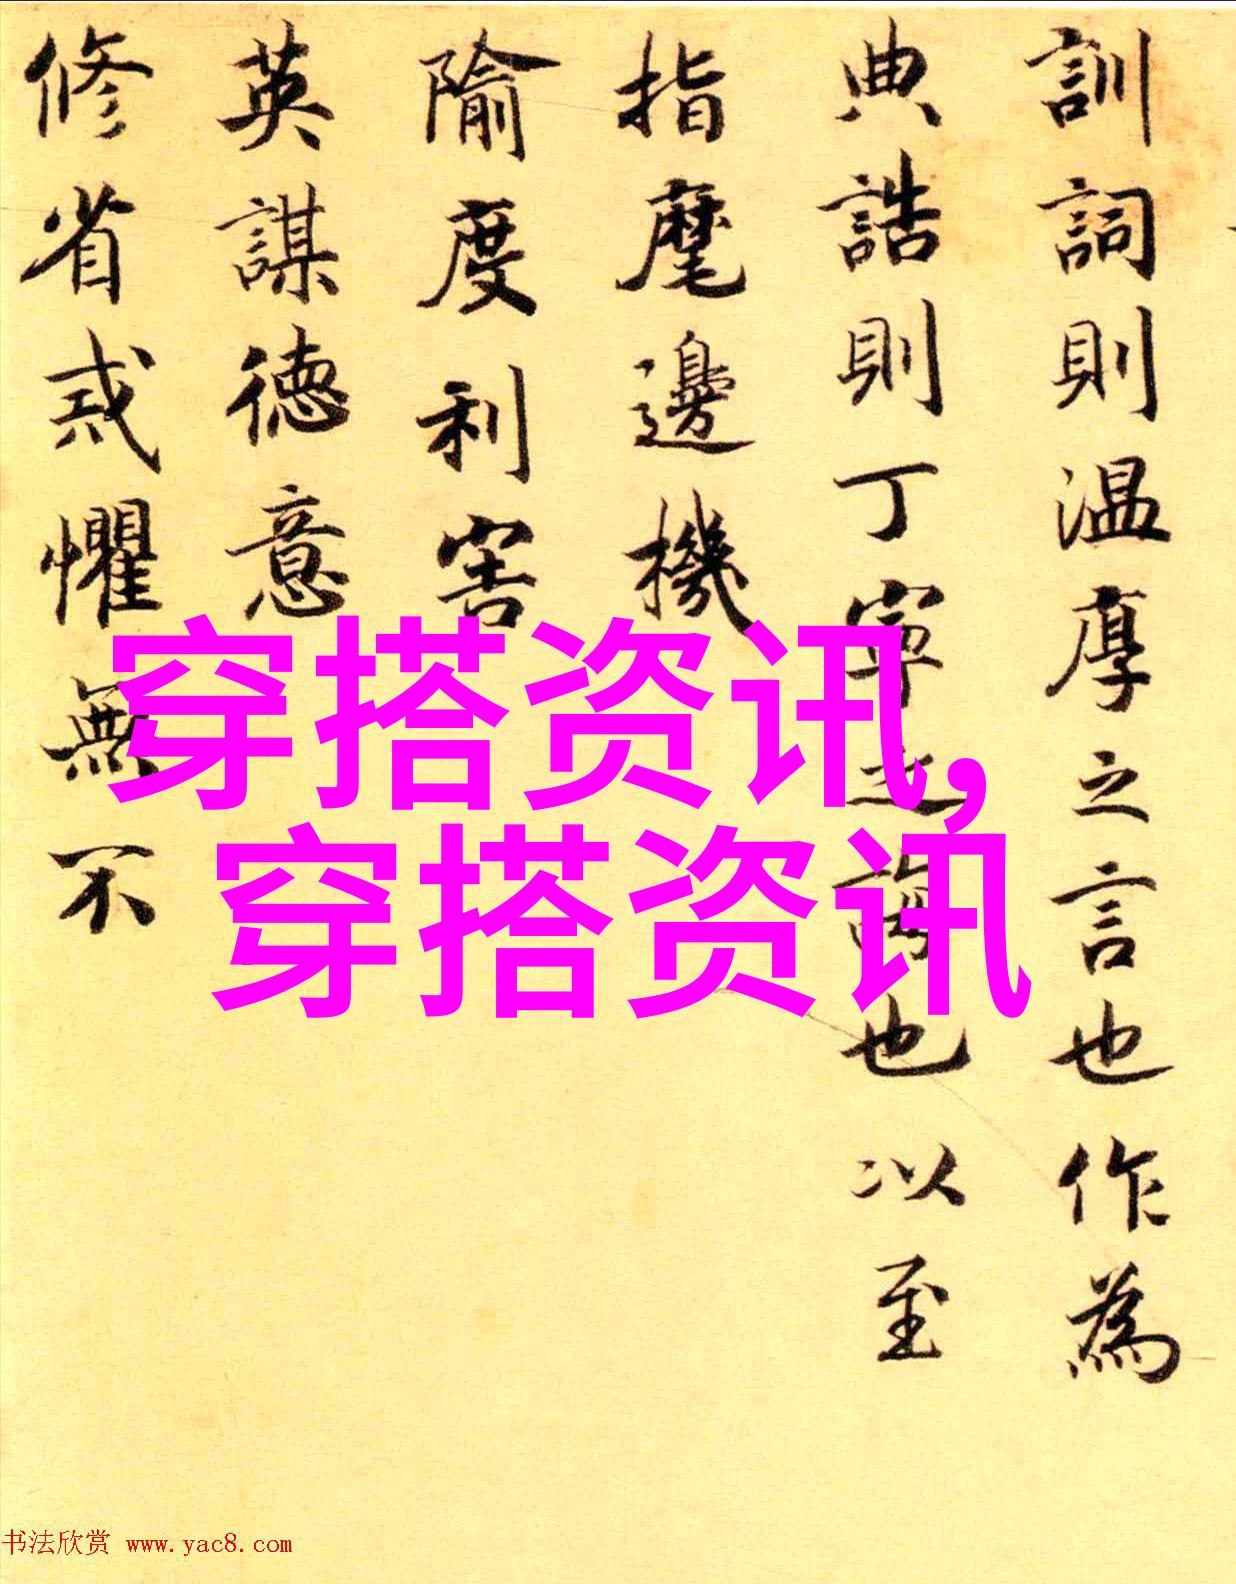 訓詞則温厚之言也作為
典誥則丁寧之誨也以至
指麾邊機
隃度利害
英謀德意
修省戒懼無不
穿搭资讯,
穿搭资讯
书法欣赏 www.yac8.com